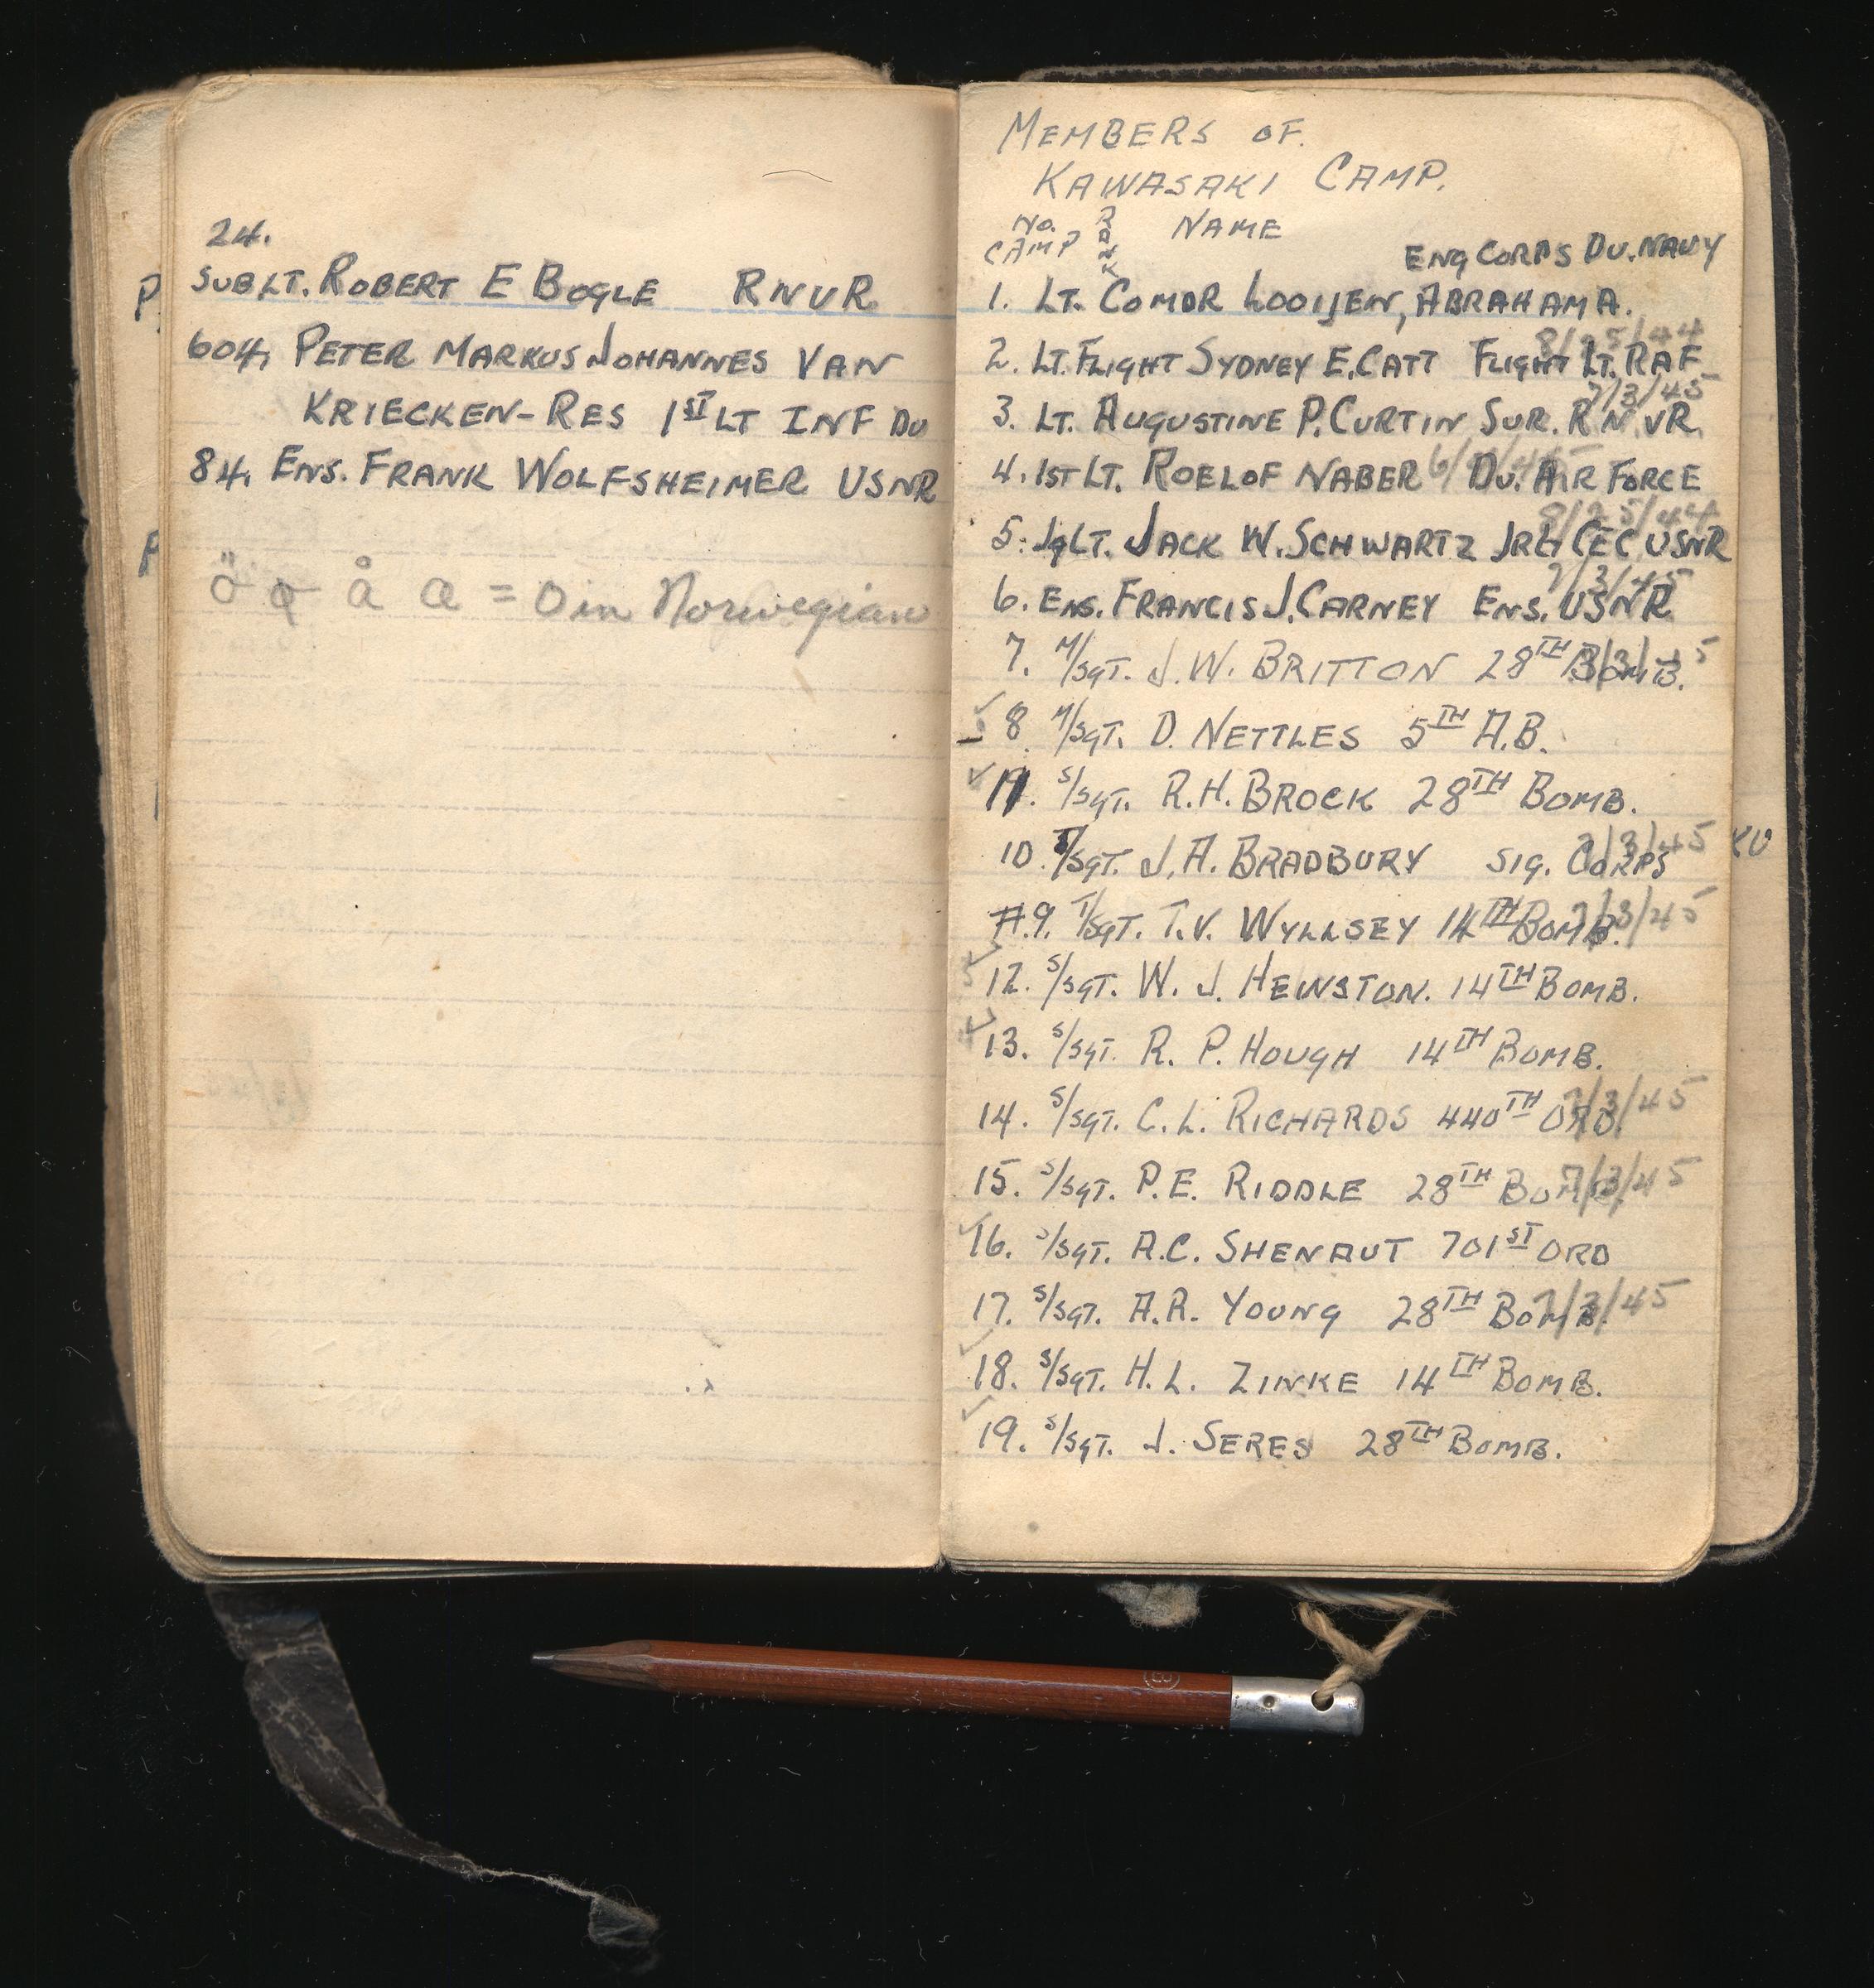 24.
SUB LT. ROBERT E BOGLE RNVR
604. PETER MARKUS JOHANNES VAN
KRIECKEN-RES 1ST LT INF DU
84. ENS. FRANK WOLFSHEIMER USNR
= O in Norwegian
MEMBERS OF.
KAWASAKI CAMP.
NO. CAMP RANK NAME
ENG CORPS DU. NAVY
1. LT. COMDR LOOIJEN, ABRAHAM A.
8/25/44
2. LT. FLIGHT SYDNEY E. CATT FLIGHT LT. RAF
7/3/45
3. LT. AUGUSTINE P. CURTIN SUR. RNVR.
4. 1ST LT. ROELOF NABER DU. AIR FORCE
8/25/44
5. JG LT. JACK W. SCHWARTZ CEC USNR
7/3/45
6. ENS. FRANCIS J. CARNEY ENS. USNR
7. M/SGT. J. W. BRITTON 28TH BOMB.
8 M/SGT. D. NETTLES 5TH A.B.
11. S/SGT. R. H. BROCK 28TH BOMB.
10. T/SGT. J. A. BRADBURY SIG. CORPS 7/3/45
#9. T/SGT. T. V. WYLLSEY 14TH BOMB. 7/3/45
12. S/SGT. W. J. HEWSTON. 14TH BOMB.
13. S/SGT. R. P. HOUGH 14TH BOMB.
14. S/SGT. C. L. RICHARDS 440TH ORD. 7/3/45
15. S/SGT. P. E. RIDDLE 28TH BOMB. 7/3/45
16. S/SGT. A. C. SHENAUT 701ST ORD
17. S/SGT. A. R. YOUNG 28TH BOMB. 7/3/45
18. S/SGT. H. L. ZINKE 14TH BOMB.
19. S/SGT. J. SERES 28TH BOMB.